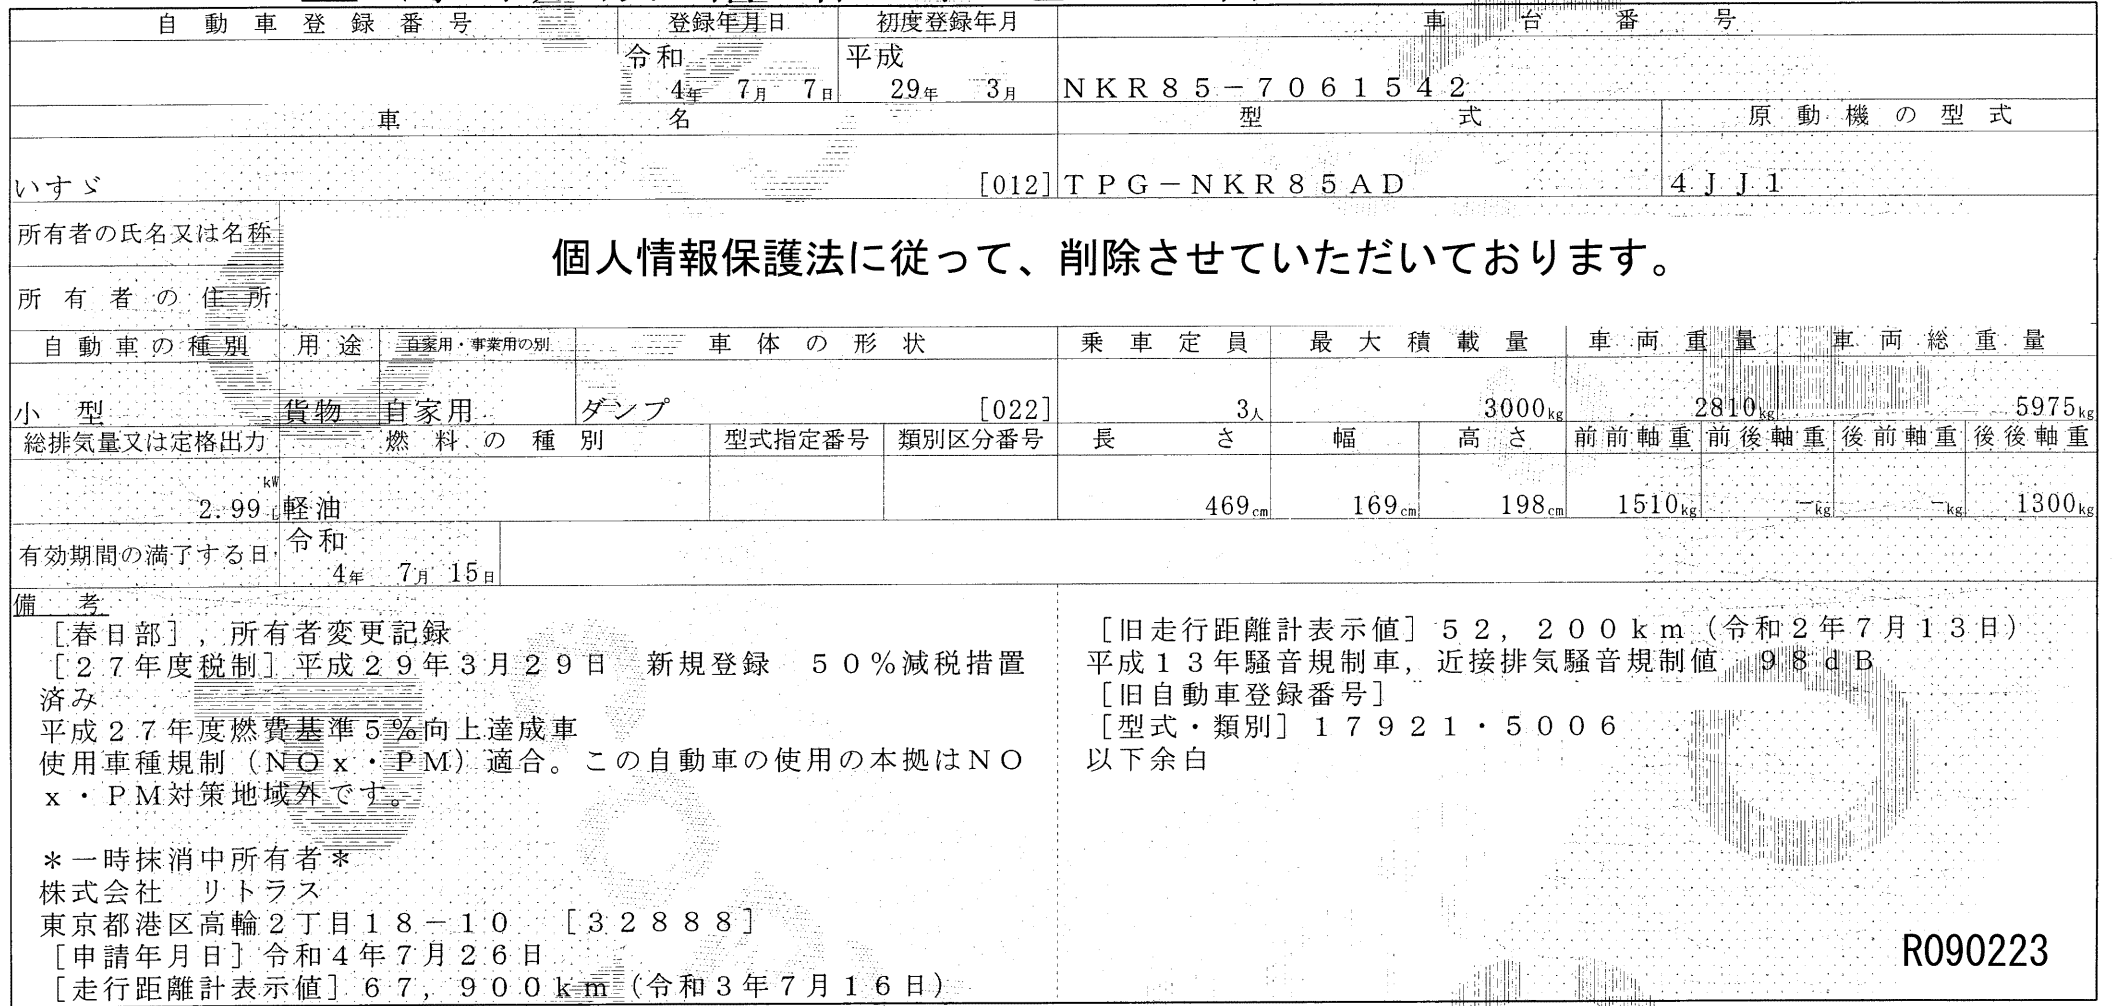 自動車登録番号 登録年月日 初度登録年月 車台番号
令和 平成
4年 7月 7日 29年 3月 NKR85-7061542
車名 型式 原動機の型式
いすゞ [012] TPG-NKR85AD 4JJ1
所有者の氏名又は名称
個人情報保護法に従って、削除させていただいております。
所有者の住所
自動車の種別 用途 自家用・事業用の別 車体の形状 乗車定員 最大積載量 車両重量 車両総重量
小型 貨物 自家用 ダンプ [022] 3人 3000kg 2810kg 5975kg
総排気量又は定格出力 燃料の種別 型式指定番号 類別区分番号 長さ 幅 高さ 前前軸重 前後軸重 後前軸重 後後軸重
kW
2.99 L 軽油 469cm 169cm 198cm 1510kg -kg -kg 1300kg
有効期間の満了する日 令和
4年 7月 15日
備考
[春日部],所有者変更記録
[27年度税制]平成29年3月29日 新規登録 50%減税措置
済み
平成27年度燃費基準5%向上達成車
使用車種規制(NOx・PM)適合。この自動車の使用の本拠はNO
x・PM対策地域外です。
*一時抹消中所有者*
株式会社 リトラス
東京都港区高輪2丁目18-10 [32888]
[申請年月日]令和4年7月26日
[走行距離計表示値]67,900km(令和3年7月16日)
[旧走行距離計表示値]52,200km(令和2年7月13日)
平成13年騒音規制車,近接排気騒音規制値 98dB
[旧自動車登録番号]
[型式・類別]17921・5006
以下余白
R090223